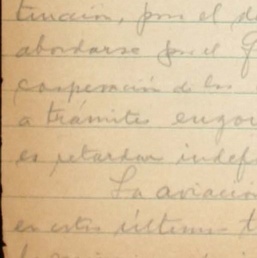 trucción, pues el de
abordarse por el G
cooperación de los
a trámites engor
es retardar indef
La aviación
en estos últimos t